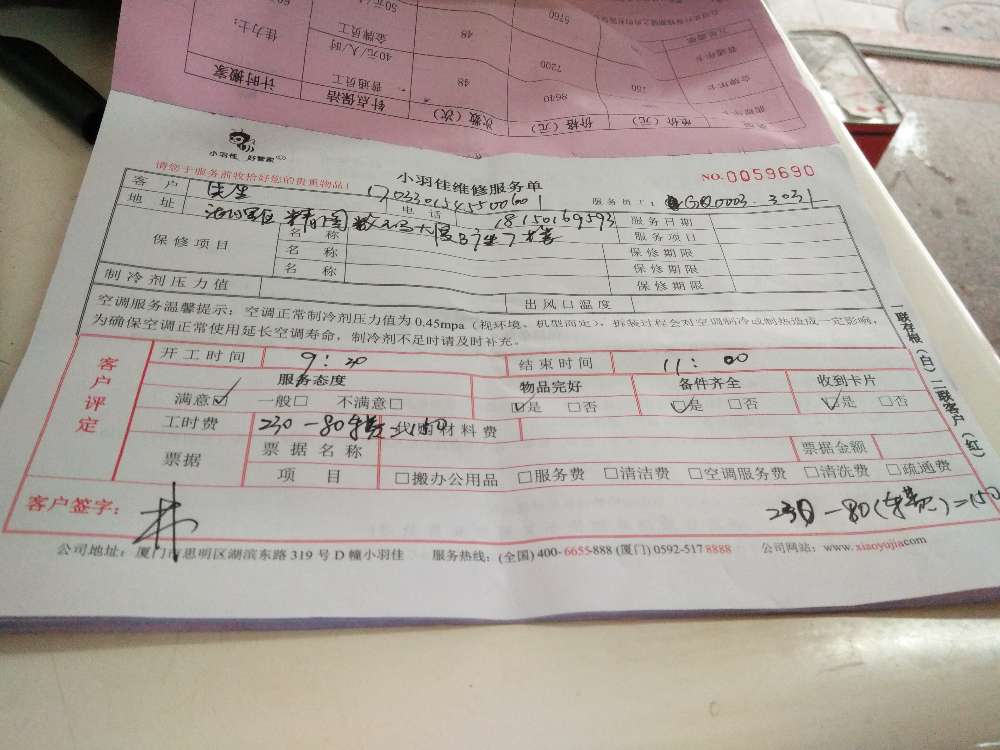 计时搬家 针点保洁 次数（次） 价格（元） 单价（元）
普通员工 48 8640 180
40元/人/时 7200 150
佳力士： 金牌员工 48 5760
50元/人
小羽佳 好管家
请您于服务前收拾好您的贵重物品！
小羽佳维修服务单
NO.0059690
客户 170330154550060 服务员工：
地址 电话 18150169593 服务日期
保修项目 名称 服务项目
名称 保修期限
名称 保修期限
保修期限
制冷剂压力值 出风口温度
空调服务温馨提示：空调正常制冷剂压力值为0.45mpa（视环境、机型而定），拆装过程会对空调制冷或制热造成一定影响，
为确保空调正常使用延长空调寿命，制冷剂不足时请及时补充。
一联存根（白）二联客户（红）
客户评定
开工时间 9：20 结束时间 11：00
服务态度 物品完好 备件齐全 收到卡片
满意☑ 一般□ 不满意□ ☑是 □否 ☑是 □否 ☑是 □否
工时费 230-80车费=150 代购材料费
票据 票据名称 票据金额
项目 □搬办公用品 □服务费 □清洁费 □空调服务费 □清洗费 □疏通费
客户签字： 林
230-80(车费)=150
公司地址：厦门市思明区湖滨东路319号D幢小羽佳 服务热线：(全国)400-6655-888 (厦门)0592-517 8888 公司网站：www.xiaoyujia.com